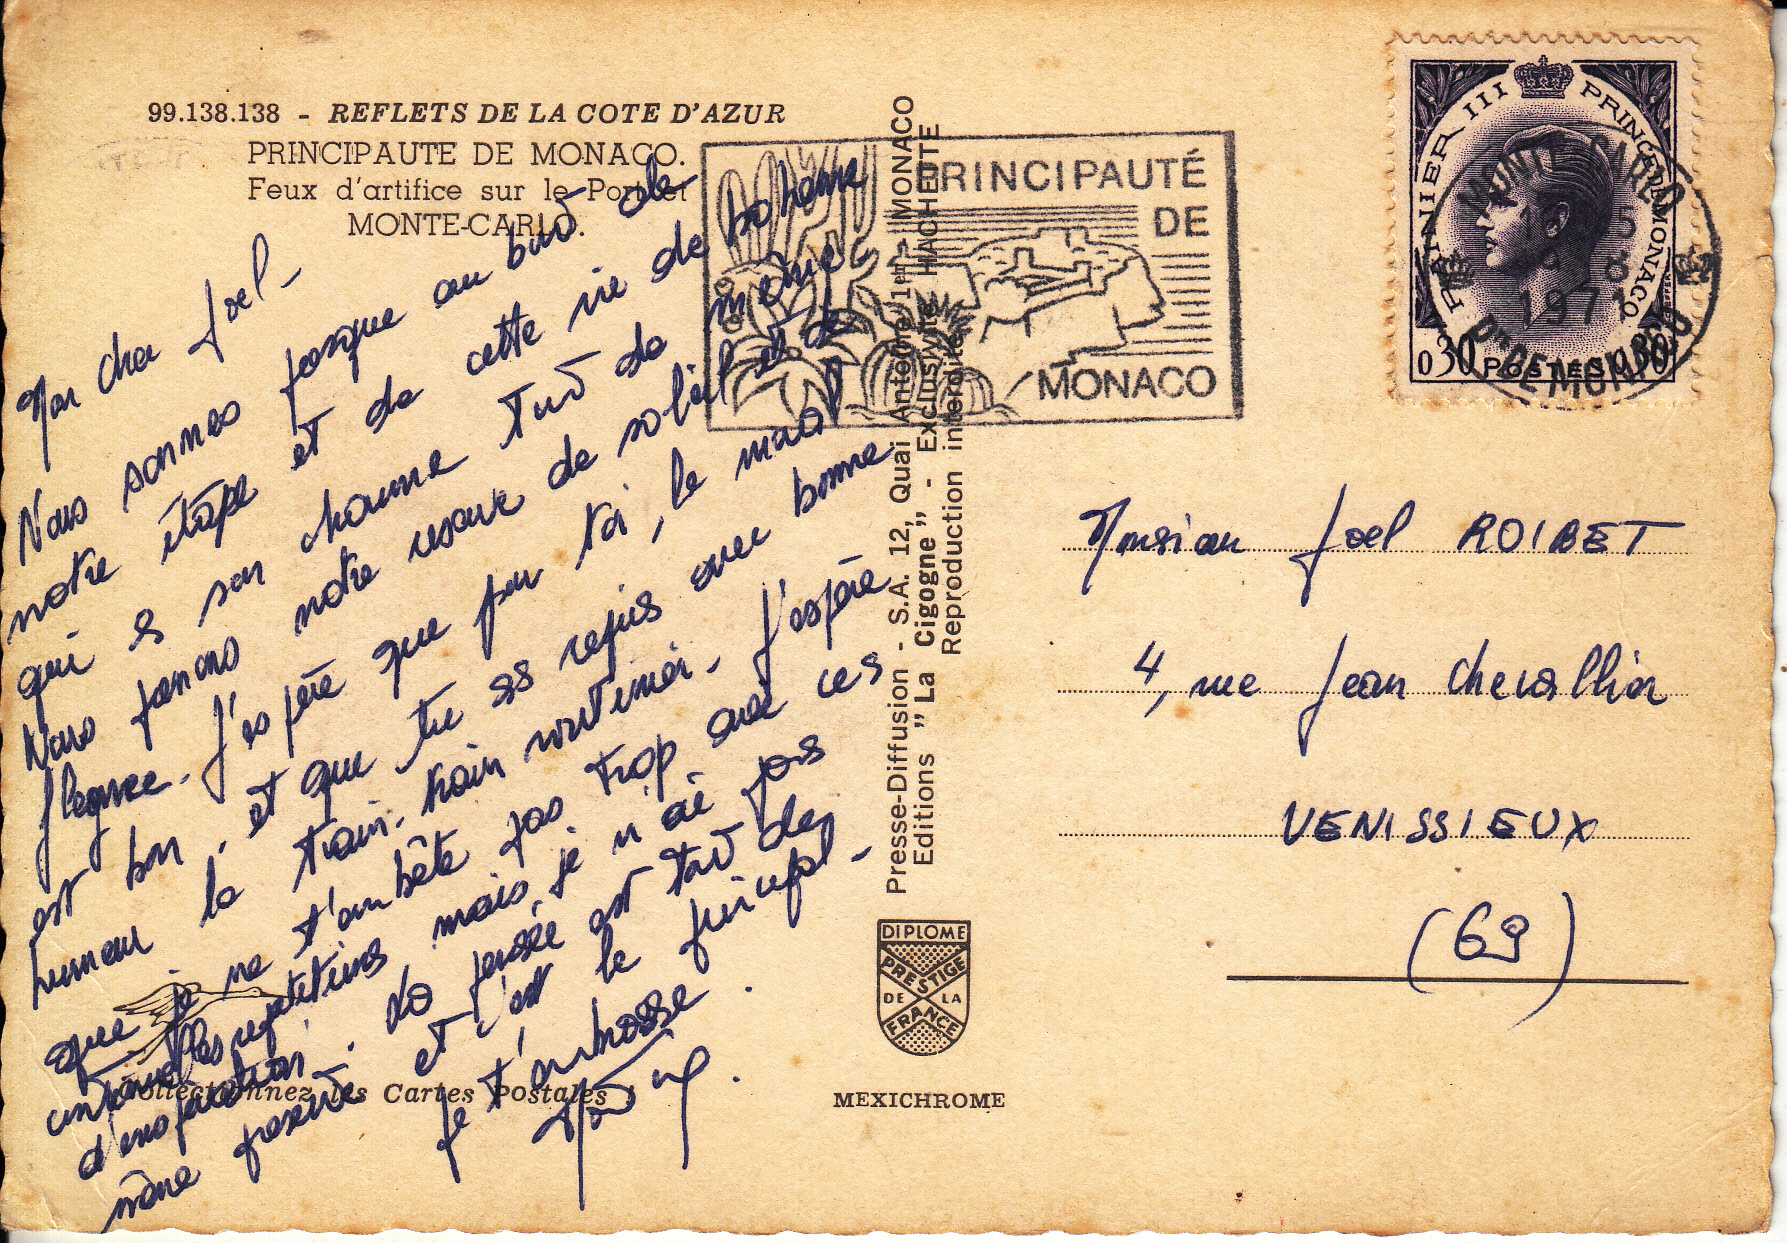 99.138.138 - REFLETS DE LA COTE D'AZUR
PRINCIPAUTE DE MONACO.
Feux d'artifice sur le Port et
MONTE-CARLO.
Mon cher Joel -
Nous sommes presque au bout de
notre étape et de cette vie de bohème
qui a son charme tout de même.
Nous faisons notre réserve de soleil et de
flegme. J'espère que pour toi, le moral
est bon, et que tu as repris avec bonne
humeur le train-train routinier. J'espère
que je ne t'embête pas trop avec ces
mais, je n'ai pas
d'inspiration. La pensée est tout de
même présente et c'est le principal -
Je t'embrasse.
PRINCIPAUTÉ
DE
MONACO
RAINIER III PRINCE DE MONACO
0,30 POSTES 0,30
MONTE CARLO
1971
PTE DE MONACO
Presse-Diffusion - S.A. 12, Quai Antoine 1er - MONACO
Editions "La Cigogne" - Exclusivité HACHETTE
Reproduction interdite
Monsieur Joel ROIBET
4, rue Jean Chevallier
VENISSIEUX
(69)
DIPLOME
PRESTIGE
DE LA
FRANCE
Collectionnez les Cartes Postales
MEXICHROME